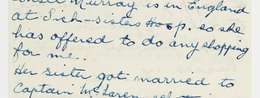 Murray is in England
at Sick-sisters Hosp. so she
has offered to do any shopping
for me..
Her sister got married to
Captain McLaren